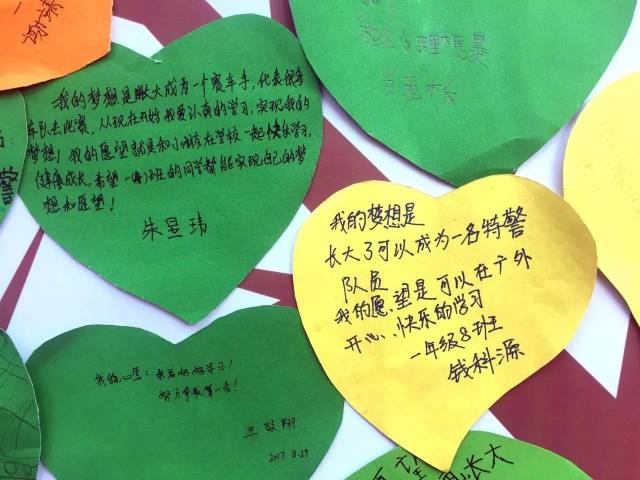 谢靖
我的梦想是长大成为一个赛车手,代表很多
车队去比赛,从现在开始我要认真的学习,实现我的
梦想!我的愿望就是和小朋友在学校一起快乐学习,
健康成长,希望一(8)班的同学都能实现自己的梦
想和愿望!
朱昱玮
理想是
警
我的梦想是
长大了可以成为一名特警
队员
我的愿望是可以在广外
开心、快乐的学习
一年级8班
钱科源
我的心愿:来年好好学习!
努力争取第一名!
2017.8.29
长大